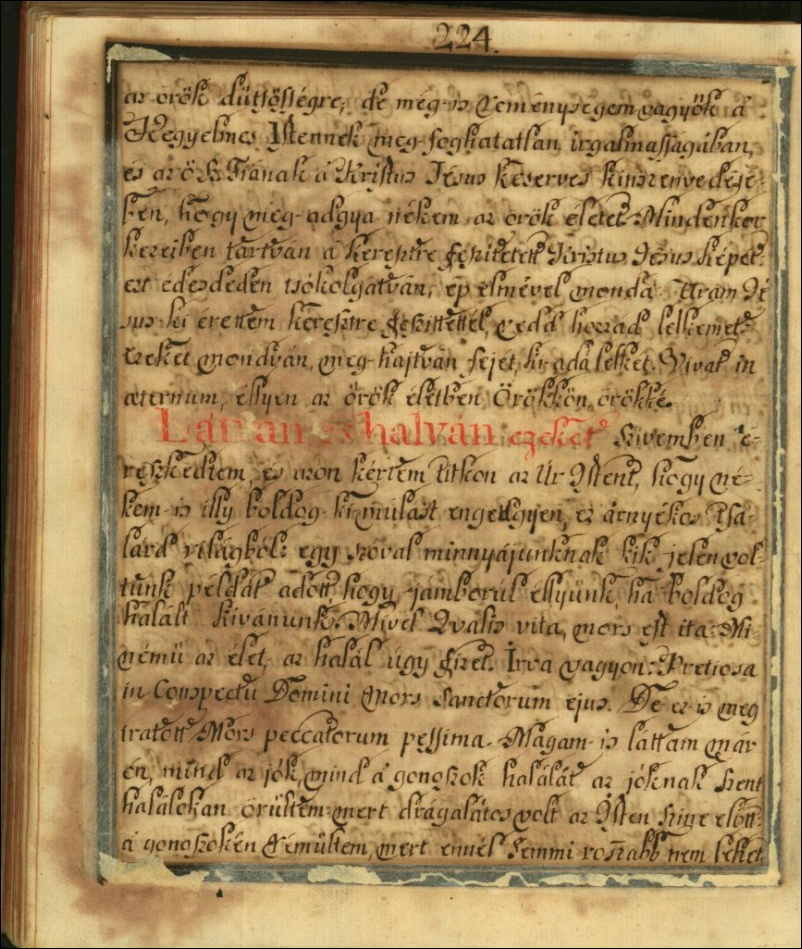 224.
az örök düttösségre, de még-is reménységem vagyök á
Kegyelmes Istennek meg-foghatatlan irgalmasságában,
és az ö Sz. Fiának á Kristus Jésus keserves kinszenvedésé-
ben, hogy meg-adgya nékem az örök életet. Mindenkor
kezeiben tartván á keresztre feszitetett Kristus Jésus képét
ezt édesdeden tsókolgatván, ép elmével mondá: Uram Jé
sus ki érettem keresztre feszittettél, vedd hozzád lelkemet
Ezeket mondván, meg-hajtván fejét, ki adá lelkét. Vivat in
æternum, éllyen az örök életben Örökkön, örökké.
Látván és halván ezeket szivemben é-
reszkedtem, és azon kértem titkon az Úr Istent, hogy né-
kem-is illy boldog ki-mulást engedgyen, ez árnyékos Psa-
lárd világból: egy szóval minnyájunknak kik jelen vol-
tunk példát adott, hogy jámborúl éllyünk, ha boldog
halált kivánunk. Mivel Qvalis vita, mors est ita: Mi-
némü az élet, az halál úgy fizet. Irva vagyon: Pretiosa
in Conspectu Domini Mors Sanctorum ejus. De ez-is meg
iratott Mors peccatorum pessima. Magam-is láttam már
én, mind az jók, mind á gonoszok halálát az jóknak szent
halálokan örültem: mert drágalátos volt az Isten szine elött
á gonoszokén rémültem, mert ennél semmi roszabb nem lehet